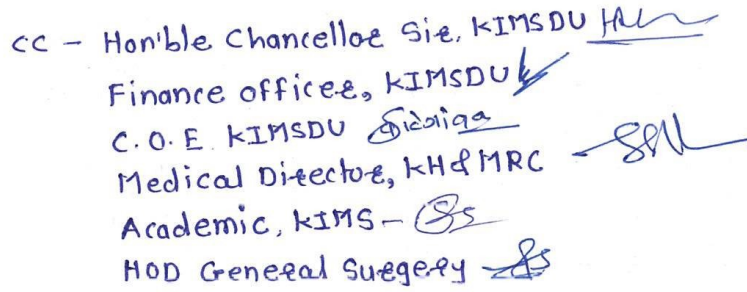 CC - Hon'ble Chancellor Sir, KIMSDU
Finance officer, KIMSDU
C.O.E KIMSDU
Medical Director, KH & MRC -
Academic, KIMS -
HOD General Surgery -